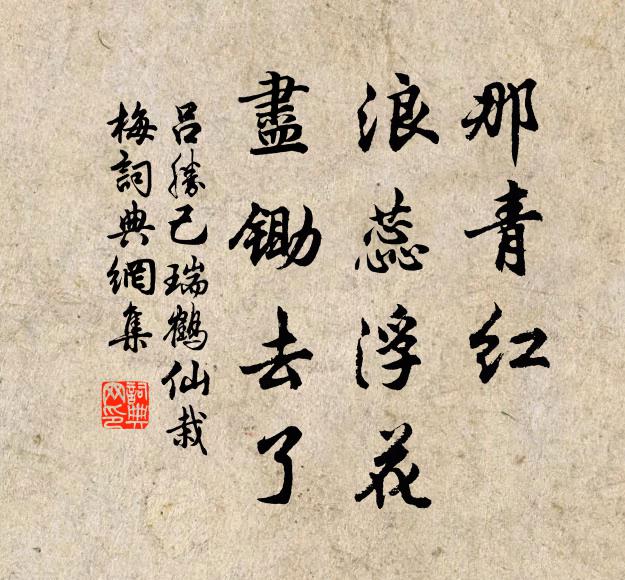 那青红
浪蕊浮花
盡鋤去了
呂勝己瑞鶴仙栽
梅詞典網集
詞典
网印